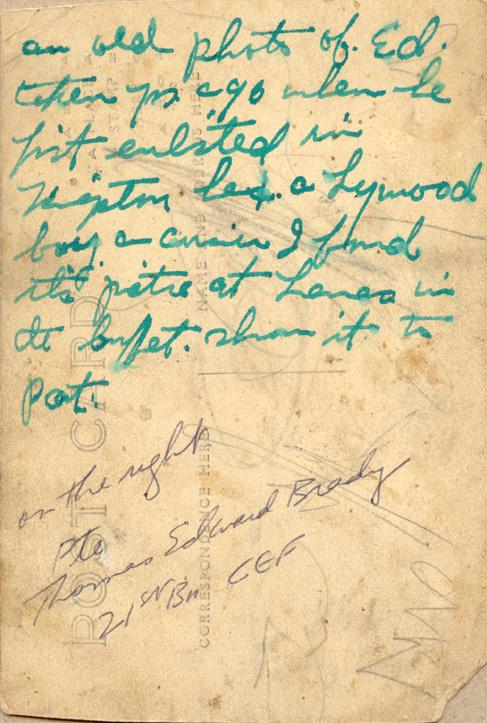 an old photo of Ed.
taken yrs ago when he
first enlisted in
he & a Lynwood
boy a cousin I found
this at Lena's in
buffet. show it to
Pat.
on the right
Pte
Thomas Edward Brady
21st Bn CEF
POST CARD
CORRESPONDENCE HERE
NAME AND ADDRESS HERE